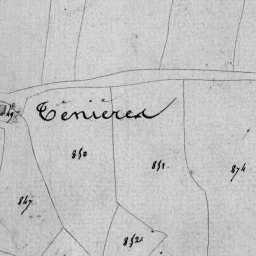 Ténières
850
851
874
847
852